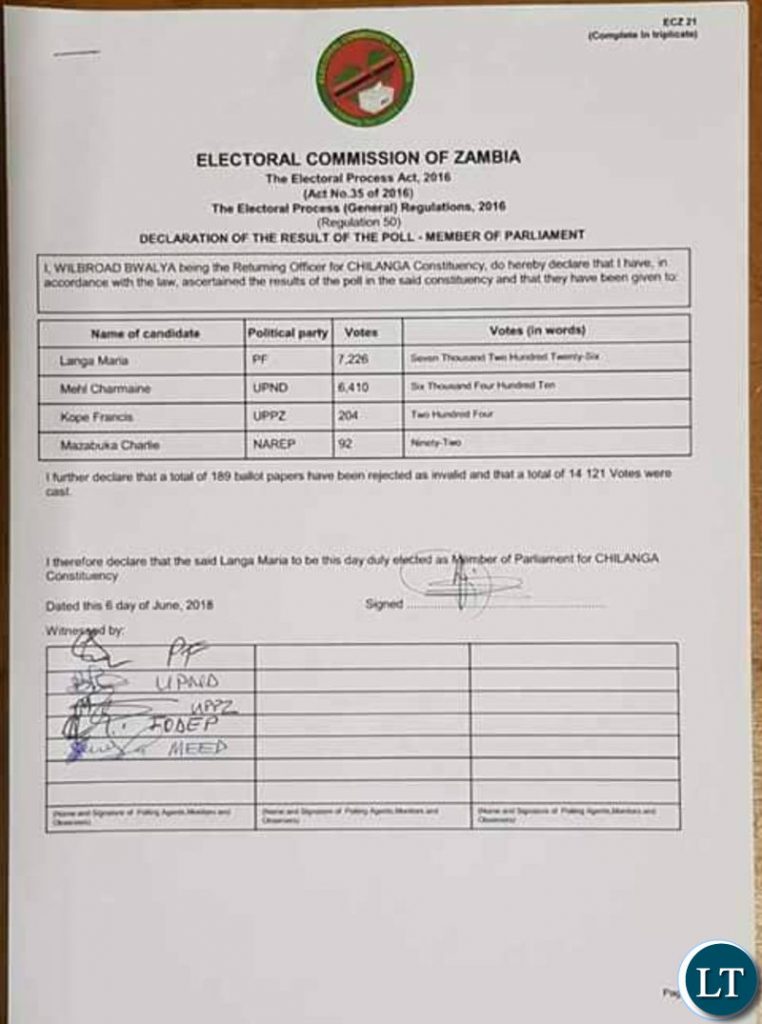 ECZ 21
(Complete in triplicate)
ELECTORAL COMMISSION OF ZAMBIA
ELECTORAL COMMISSION OF ZAMBIA
The Electoral Process Act, 2016
(Act No.35 of 2016)
The Electoral Process (General) Regulations, 2016
(Regulation 50)
DECLARATION OF THE RESULT OF THE POLL - MEMBER OF PARLIAMENT
I, WILBROAD BWALYA being the Returning Officer for CHILANGA Constituency, do hereby declare that I have, in
accordance with the law, ascertained the results of the poll in the said constituency and that they have been given to:
Name of candidate Political party Votes Votes (in words)
Langa Maria PF 7,226 Seven Thousand Two Hundred Twenty-Six
Mehl Charmaine UPND 6,410 Six Thousand Four Hundred Ten
Kope Francis UPPZ 204 Two Hundred Four
Mazabuka Charlie NAREP 92 Ninety-Two
I further declare that a total of 189 ballot papers have been rejected as invalid and that a total of 14 121 Votes were
cast.
I therefore declare that the said Langa Maria to be this day duly elected as Member of Parliament for CHILANGA
Constituency
Dated this 6 day of June, 2018 Signed
Witnessed by:
PF
UPND
UPPZ
FODEP
MEED
(Name and Signature of Polling Agents,Monitors and
Observers)
(Name and Signature of Polling Agents,Monitors and
Observers)
(Name and Signature of Polling Agents,Monitors and
Observers)
LT